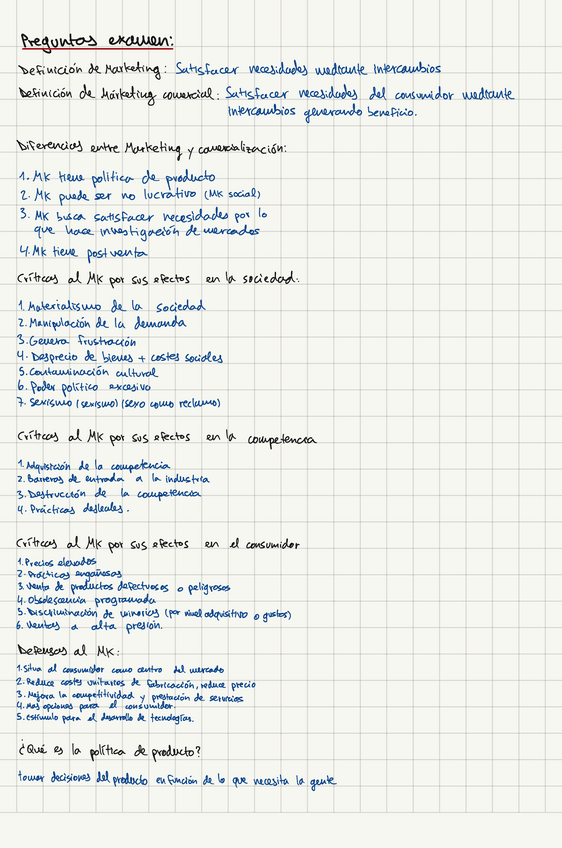 Preguntas examen:
Definición de Marketing: Satisfacer necesidades mediante intercambios
Definición de Márketing comercial: Satisfacer necesidades del consumidor mediante
intercambios generando beneficio.
Diferencias entre Marketing y comercialización:
1. MK tiene política de producto
2. MK puede ser no lucrativo (MK social)
3. MK busca satisfacer necesidades por lo
que hace investigación de mercados
4. MK tiene postventa
Críticas al MK por sus efectos en la sociedad:
1. Materialismo de la sociedad
2. Manipulación de la demanda
3. Genera frustración
4. Desprecio de bienes + costes sociales
5. Contaminación cultural
6. Poder político excesivo
7. Sexismo (sexismo) (sexo como reclamo)
Críticas al MK por sus efectos en la competencia
1. Adquisición de la competencia
2. Barreras de entrada a la industria
3. Destrucción de la competencia
4. Prácticas desleales.
Críticas al MK por sus efectos en el consumidor
1. Precios elevados
2. Prácticas engañosas
3. Venta de productos defectuosos o peligrosos
4. Obsolescencia programada
5. Discriminación de minorías (por nivel adquisitivo o gustos)
6. Ventas a alta presión.
Defensas al MK:
1. Situa al consumidor como centro del mercado
2. Reduce costes unitarios de fabricación, reduce precio
3. Mejora la competitividad y prestación de servicios
4. Mas opciones para el consumidor.
5. estímulo para el desarrollo de tecnologías.
¿Qué es la política de producto?
tomar decisiones del producto en función de lo que necesita la gente